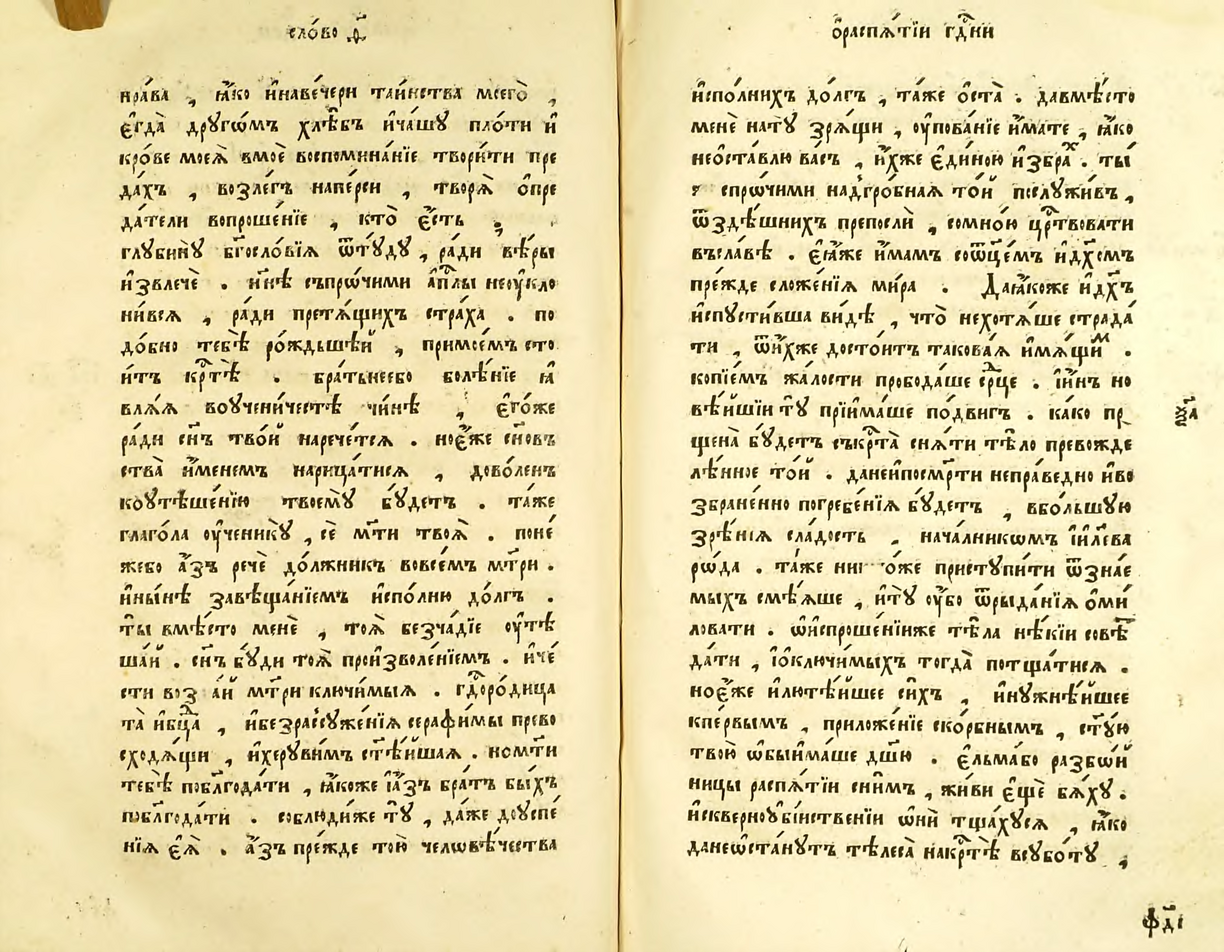 сло́во д҃
нра́ва , ꙗ҆́ко и҆навече́ри таи́нства моего̀ ,
є҆гда̀ друго́мъ хлѣ́бъ и҆ча́шу пло́ти и҆
кро́ве моеѧ̀ вмоѐ воспомина́нїе твори́ти пре
да́хъ , возле́гъ напе́рси , творѧ̀ ѻ҆пре
да́тели вопроше́нїе , кто̀ є҆́сть
глубинꙋ̀ бг҃осло́вїѧ ѿтꙋ́дꙋ , ра́ди вѣ́ры
и҆звлечѐ . и҆нѣ̀ съпро́чими а҆пⷭ҇лы неоукло
ни́всѧ , ра́ди претѧ́щихъ стра́ха . по
до́бно тебѣ̀ ро́ждьшей , примое́мъ сто
и́тъ крⷭ҇тѣ̀ . братьнеебо болѣ́нїе ꙗ҆
влѧ́ѧ воучени́честѣ чи́нѣ , є҆го́же
ра́ди сн҃ъ тво́й нарече́тсѧ . ное́же сн҃овъ
ства и҆́менемъ нарица́тисѧ , дово́ленъ
коутѣше́нїю твоемꙋ̀ бꙋ́детъ . та́же
глаго́ла оу҆ченикꙋ̀ , сѐ мт҃и твоѧ̀ . поне́
жебо а҆́зъ речѐ до́лжникъ вовсе́мъ мт҃ри .
и҆ны́нѣ завѣща́нїемъ и҆спо́лню до́лгъ .
ты̀ вмѣ́сто менѐ , тоѧ̀ безча́дїе оу҆тѣ
ша́й . сн҃ъ бꙋ́ди тоѧ̀ произволе́нїемъ . и҆че́
сти мт҃ри ключи́мыѧ . гдⷭ҇оро́дица
та̀ и҆бц҃а , и҆безразсꙋже́нїѧ серафи́мы прево
сходѧ́щи , и҆херꙋви́мъ ст҃ѣ́йшаѧ . номт҃и
тебѣ̀ побл҃года́ти , ꙗ҆́коже і҆а҆́зъ бра́тъ бы́хъ
побл҃года́ти . соблюди́же тꙋ̀ , да́же доуспе́
нїѧ є҆ѧ̀ . а҆́зъ пре́жде то́ю человѣ́чества
ѻ҆распѧ́тїи гдⷭ҇ни
и҆спо́лнихъ до́лгъ , та́же ѻ҆ста̀ . давмѣ́сто
менѐ натꙋ̀ зрѧ́щи , оу҆пова́нїе и҆́мате , ꙗ҆́ко
неѻста́влю ва́съ , и҆́хже є҆ди́ною и҆збраⷯ . ты̀
спро́чими надгро́бнаѧ то́й послꙋжи́въ ,
ѿздѣ́шнихъ препослѝ , сомно́ю црⷭ҇твовати
въсла́вѣ . є҆ꙗ҆́же и҆́мамъ соѻц҃е́мъ и҆дх҃омъ
пре́жде сложе́нїѧ ми́ра . Даꙗ҆́коже и҆дх҃ъ
и҆спꙋсти́вша ви́дѣ , что̀ нехотѧ́ше страда́
ти , ѿни́хже досто́итъ такова́ѧ и҆мѧ́щиⷨ .
копїе́мъ жа́лости пробода́ше срⷣце . і҆и́нъ но
вѣ́йшїи тꙋ̀ прїима́ше по́двигъ . ка́ко
щена̀ бꙋ́детъ съкрⷭ҇та̀ снѧ́ти тѣ́ло превожде
лѣ́нное то́й . данеи҆посмр҃ти непра́ведно и҆во
збране́нно погребе́нїѧ бꙋ́детъ , вбо́льшꙋю
зрѣ́нїѧ сла́дость , нача́лникомъ і҆и҃лева
ро́да . та́же пристꙋпи́ти ѿзнае́
мыхъ смѣ́ѧше , и҆тꙋ̀ оу҆́бо ѿрыда́нїѧ ѻ҆ми́
ловати . ѡ҆и҆спроше́нїиже тѣ́ла нѣ́кїи совѣ
да́ти , і҆ѻключи́мыхъ тогда̀ потща́тисѧ .
ное́же и҆лютѣ́йшее си́хъ , и҆нꙋжнѣ́йшее
кпе́рвымъ , приложе́нїе ско́рбнымъ , ст҃ꙋ́ю
твою̀ ѡ҆б̾има́ше дш҃ю . є҆льма́бо разбо́й
ницы распѧ́тїи сни́мъ , жи́ви є҆щѐ бѧ́хꙋ .
и҆скверноуби́нственїи ѻ҆нѝ тща́хꙋсѧ , ꙗ҆́ко
данеѡста́нꙋтъ тѣлеса̀ накрⷭ҇тѣ̀ всꙋбо́тꙋ ,